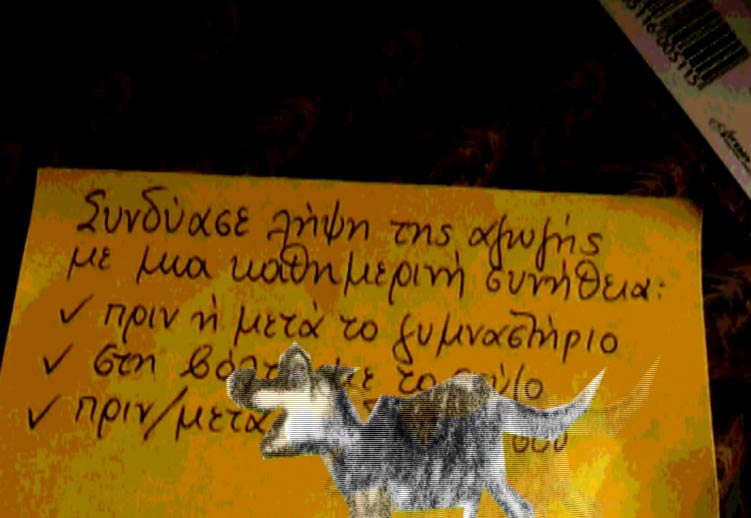 Συνδύασε λήψη της αγωγής
με μια καθημερινή συνήθεια:
✓ πριν ή μετά το γυμναστήριο
✓ στη βόλτα με το
✓ πριν/μετά σου